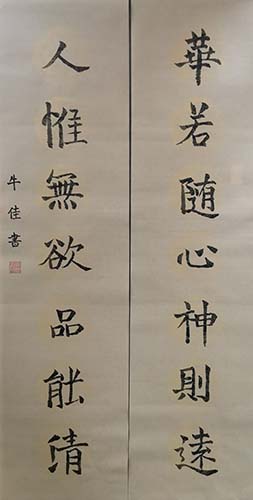 華若随心神則遠
人惟無欲品能清
牛佳書